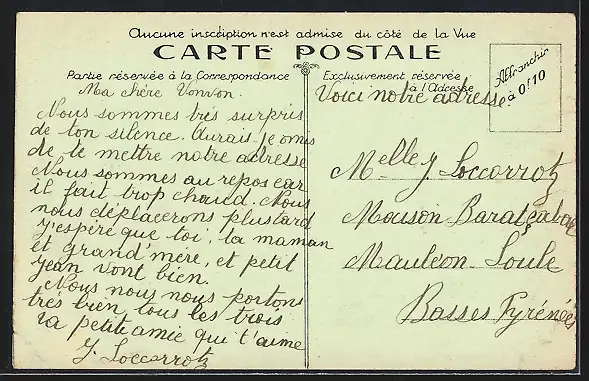 Aucune inscription n'est admise du côté de la Vue
CARTE POSTALE
Partie réservée à la Correspondance
Exclusivement réservée
à l'Adresse
Affranchir
à 0f10
Ma chère Vonvon.
Nous sommes très surpris
de ton silence. Aurais je omis
de te mettre notre adresse
Nous sommes au repos car
il fait trop chaud. Nous
nous déplacerons plustard
j'espère que toi, ta maman
et grand'mère, et petit
jean vont bien.
Nous nous nous portons
très bien tous les trois
ta petite amie qui t'aime
J. Loccarrotz
Voici notre adresse
Melle J Loccarrotz
Maison Baratçabal
Mauléon Soule
Basses Pyrénées